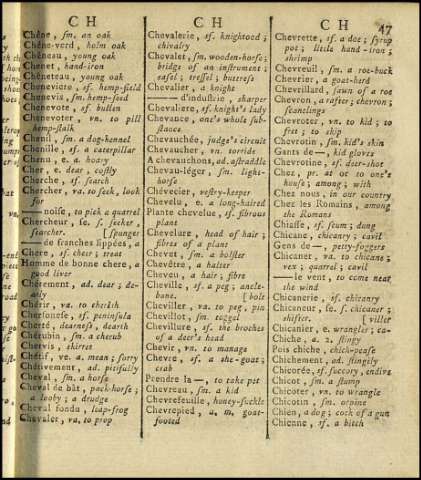 C H
Chêne, sm. an oak
Chêne-verd, holm oak
Chêneau, young oak
Chenet, hand-iron
Chêneteau, young oak
Cheneviere, sf. hemp-field
Chenevis, sm. hemp-seed
Chenevote, sf. bullen
Chenevoter, vn. to pill
hemp-stalk
Chenil, sm. a dog-kennel
Chenille, sf. a caterpillar
Chenu, e. a. hoary
Cher, e. dear, costly
Cherche, sf. search
Chercher, va. to seek, look
for
— noise, to pick a quarrel
Chercheur, se. s. seeker,
searcher. [spunger
— de franches lippées, a
Chère, sf. cheer; treat
Homme de bonne chere, a
good liver
Chèrement, ad. dear; de-
arly
Chérir, va. to cherish
Chersonese, sf. peninsula
Cherté, dearness, dearth
Chérubin, sm. a cherub
Chervis, skirret
Chétif, ve. a. mean; sorry
Chétivement, ad. pitifully
Cheval, sm. a horse
Cheval de bât, pack-horse;
a looby; a drudge
Cheval fondu, leap-frog
Chevaler, va. to prop
C H
Chevalerie, sf. knighthood;
chivalry
Chevalet, sm. wooden-horse;
bridge of an instrument;
easel; tressel; buttress
Chevalier, a knight
— d'industrie, sharper
Chevaliere, sf. knight's lady
Chevance, one's whole sub-
stance
Chevauchée, judge's circuit
Chevaucher, vn. to ride
A chevauchons, ad. astraddle
Chevau-léger, sm. light-
horse
Chévécier, vestry-keeper
Chevelu, e. a long-haired
Plante chevelue, sf. fibrous
plant
Chevelure, head of hair;
fibres of a plant
Chevet, sm. a bolster
Chevêtre, a halter
Cheveu, a hair; fibre
Cheville, sf. a peg; ancle-
bone. [bolt
Cheviller, va. to peg, pin
Chevillot, sm. toggel
Chevillure, sf. the broches
of a deer's head
Chevir, vn. to manage
Chevre, sf. a she-goat;
crab
Prendre la —, to take pet
Chevreau, sm. a kid
Chevrefeuille, honey-suckle
Chevrepied, a. m. goat-
footed
C H
47
Chevrette, sf. a doe; syrup
pot; little hand-iron;
shrimp
Chevreuil, sm. a roe-buck
Chevrier, a goat-herd
Chevrillard, fawn of a roe
Chevron, a rafter; chevron;
scantlings
Chevroter, vn. to kid; to
fret; to skip
Chevrotin, sm. kid's skin
Gants de —, kid gloves
Chevrotine, sf. deer-shot
Chez, pr. at or to one's
house; among; with
Chez nous, in our country
Chez les Romains, among
the Romans
Chiasse, sf. scum; dung
Chicane, chicanry; cavil
Gens de —, petty-foggers
Chicaner, va. to chicane;
vex; quarrel; cavil
— le vent, to come near
the wind
Chicanerie, sf. chicanry
Chicaneur, se. s. chicaner;
shifter. [viller
Chicanier, e. wrangler; ca-
Chiche, a. 2. stingy
Pois chiche, chich-pease
Chichement, ad. stingily
Chicorée, sf. succory, endive
Chicot, sm. a stump
Chicoter, vn. to wrangle
Chicotin, sm. orpine
Chien, a dog; cock of a gun
Chienne, sf. a bitch